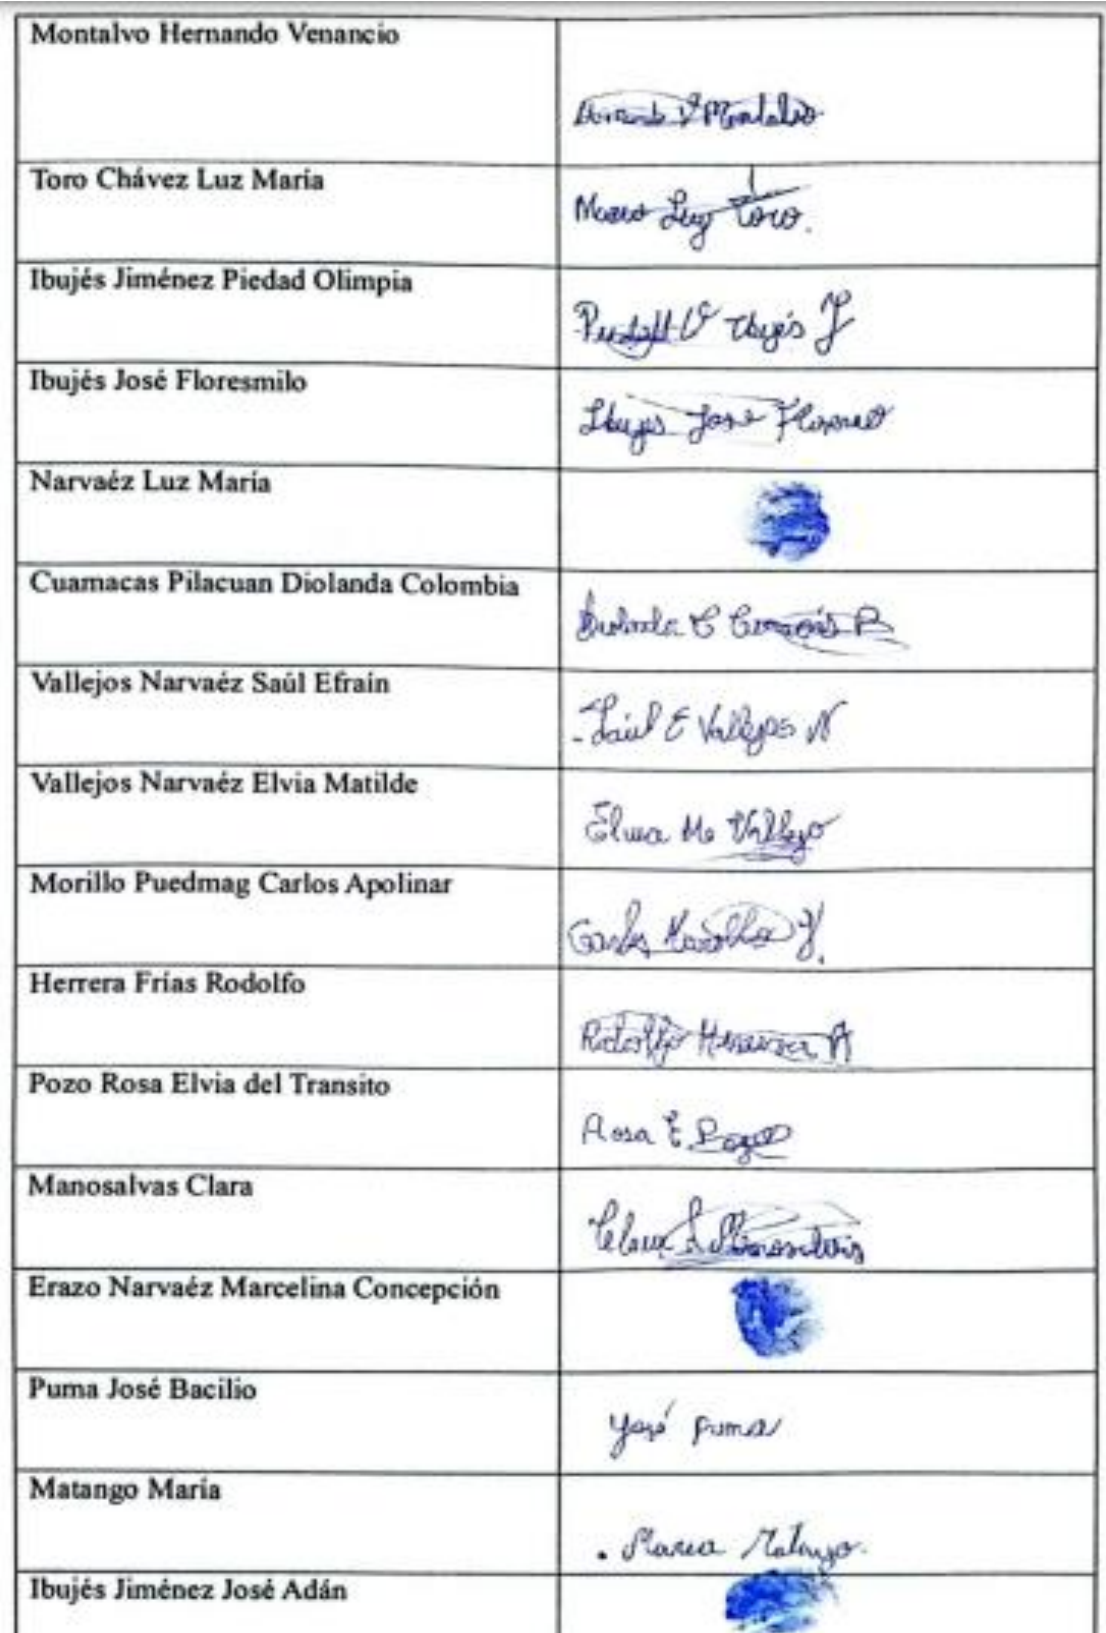 Montalvo Hernando Venancio
V Montalvo
Toro Chávez Luz María
Luz Toro.
Ibujés Jiménez Piedad Olimpia
Ibujés J
Ibujés José Floresmilo
Ibujes José
Narvaéz Luz María
Cuamacas Pilacuan Diolanda Colombia
C
Vallejos Narvaéz Saúl Efraín
Saúl E Vallejos N
Vallejos Narvaéz Elvia Matilde
Elvia Vallejo
Morillo Puedmag Carlos Apolinar
Carlos
Herrera Frías Rodolfo
Rodolfo Herrera
Pozo Rosa Elvia del Transito
Rosa E Pozo
Manosalvas Clara
Manosalvas
Erazo Narvaéz Marcelina Concepción
Puma José Bacilio
José Puma
Matango María
Maria Matango.
Ibujés Jiménez José Adán